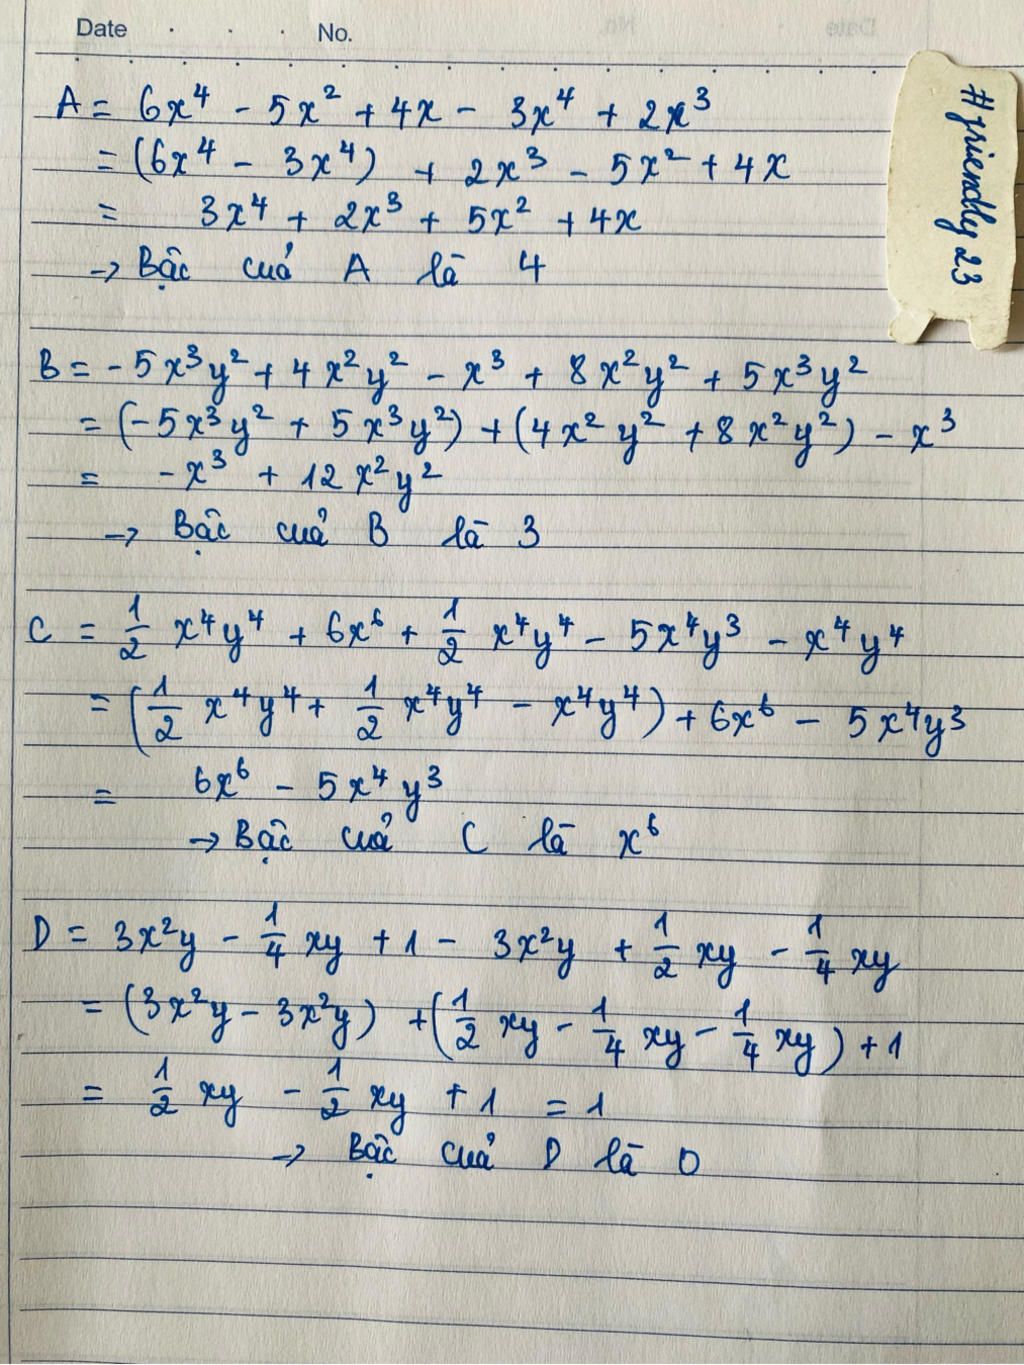 Date . . . No.
A = 6x⁴ - 5x² + 4x - 3x⁴ + 2x³
= (6x⁴ - 3x⁴) + 2x³ - 5x² + 4x
= 3x⁴ + 2x³ + 5x² + 4x
→ Bậc cuả A là 4
#friendly23
B = -5x³y² + 4x²y² - x³ + 8x²y² + 5x³y²
= (-5x³y² + 5x³y²) + (4x²y² + 8x²y²) - x³
= -x³ + 12x²y²
→ Bậc cuả B là 3
C = 1/2 x⁴y⁴ + 6x⁶ + 1/2 x⁴y⁴ - 5x⁴y³ - x⁴y⁴
= (1/2 x⁴y⁴ + 1/2 x⁴y⁴ - x⁴y⁴) + 6x⁶ - 5x⁴y³
= 6x⁶ - 5x⁴y³
→ Bậc cuả C là x⁶
D = 3x²y - 1/4 xy + 1 - 3x²y + 1/2 xy - 1/4 xy
= (3x²y - 3x²y) + (1/2 xy - 1/4 xy - 1/4 xy) + 1
= 1/2 xy - 1/2 xy + 1 = 1
→ Bậc cuả D là 0